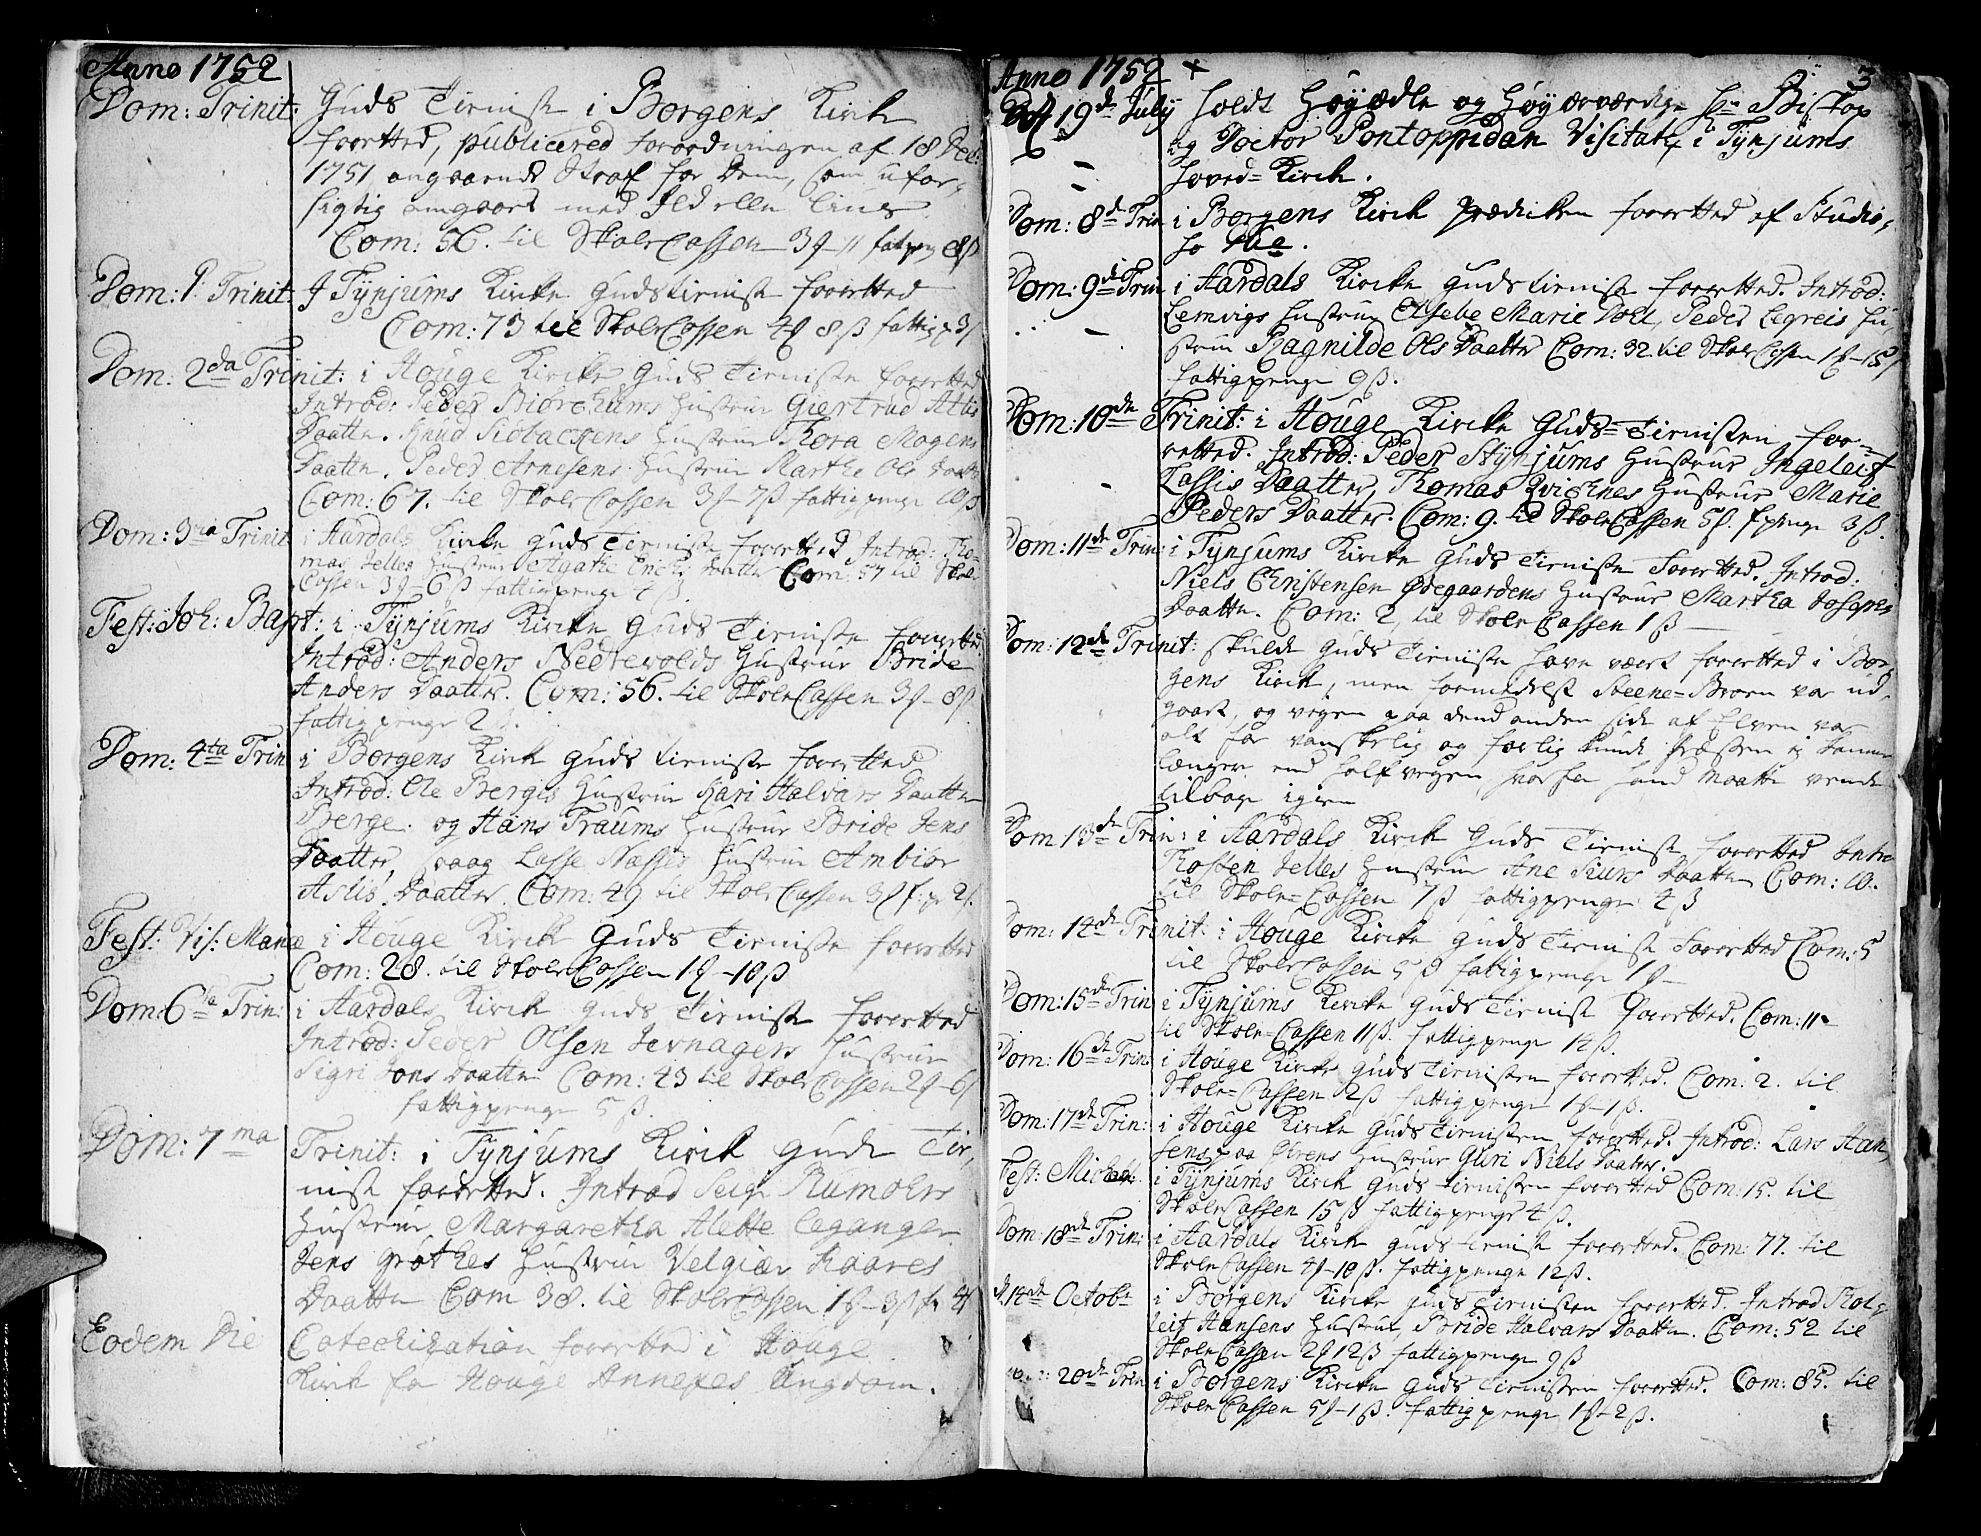 Anno 1752
Dom: Trinit: Guds Tieniste i Borgens Kirke
forretted, publicered Forordningen af 18 Dec:
1751 angaaende Straf for dem, som ufor-
sigtig omgaaes med Ild eller Lius
Com: 56. til Skole Cassen 3 11 fatpeng 8ß
Dom: 1 Trinit: I Tÿnjums Kirke Guds tieniste forretted
Com: 73 til Skole Cassen 4 8 ß fattigp 3
Dom: 2da Trinit: i Houge Kirke Guds Tieniste forretted
Introd: Peder Hustrue Giertrud Atlis
Daatter. Knud Hustrue Thora Mogens
Daatter. Peder Arnesens Hustrue Marthe Ols Daatter
Com: 67. til Skole Cassen 3 - 7ß fattigpenge 10ß
Dom: 3tia Trinit: i Aardals Kirke Guds Tieniste forretted Introd: Tho-
mas Jelles Hustrue Agathe Erichs Daatter Com: 57 til Skole
Cassen 3 - 6ß fattigpenge ß.
Fest: Joh: Bapt: i Tÿnjums Kirke Guds Tieniste forretted
Introd: Anders Nedrevolds Hustrue Bride
Anders Daatter. Com: 56. til Skole Cassen 3 - 8ß
fattigpenge 2
Dom: 4ta Trin i Borgens Kirke Guds tieniste forretted
Introd: Ole Berges Hustrue Kari Halvars Daatter
Berge. og Hans Traums Hustrue Bride Jens
Daatter, saaog Lasse Hustrue Ambiør
Aslis Daatter. Com: 49 til Skole Cassen 3 f:p 2
Fest: Vis: Mariæ i Houge Kirke Guds Tieniste forretted
Com: 28. til Skole Cassen 1 - 10ß
Dom: 6ta Trin: i Aardals Kirke Guds Tieniste forretted
Introd: Peder Olsen Hustrue
Sigri Jons Daatter Com: 43 til Skole Cassen 2 - 6
fattigpenge 5ß.
Dom: 7ma Trinit: i Tÿnjums Kirke Guds Tie-
niste forretted. Introd Rumohrs
Hustrue Margaretha Alette Leganger
Jens Grøthes Hustrue Velgiær Kaares
Daatter Com 38. til Skole Cassen 1 - 3ß 4
Eodem Die Catechization forretted i Houge
Kirke for Houge Annexes Ungdom.
Anno 1752
3
19de Julÿ holdt Høyædle og Høyærværdige Hr Biskop
og Doctor Pontoppidan Visitatz i Tÿnjums
Hoved-Kirke.
Dom: 8de Trin i Borgens Kirke Prædiken forretted af Studio-
so
Dom: 9de Trin i Aardals Kirke Guds tieniste forretted. Introd:
Lemvigs Hustrue Elsebe Marie Peder Legreis Hu-
strue Ragnilde Ols Daatter Com: 32. til Skole Cassen 1 - 15
fattigpenge 9ß.
Dom: 10de Trinit: i Houge Kirke Guds-Tienisten for-
retted. Introd: Peder Stÿnjums Hustrue Ingeleif
Lassis Daatter, Thomas Qvichnes Hustrue Marie
Peders Daatter. Com: 9. til Skole Cassen 5 fpenge 3ß.
Dom: 11de Trin: i Tÿnjums Kirke Guds Tieniste Forretted. Introd:
Niels Christensen Ødegaardens Hustrue Martha Josephs
Daatter. Com: 2, til Skole Cassen 1ß
Dom: 12de Trinit: skulde Guds Tieniste have været forretted i Bor-
gens Kirke, men formedelst Steene-Broen var ud-
gaaet, og vegen paa dend anden side af Elven var
alt for vanskelig og farlig kunde Præsten ej komme
længere end half vegen, hvorfra hand maatte vende
tilbage igien
Dom 13de Trin: i Aardals Kirke Guds Tieniste forretted Intro
Thosten Jelles Hustrue Ane Siurs Daatter Com: 10.
til Skole-Cassen 7ß fattigpenge 4ß
Dom: 14de Trinit: i Houge Kirke Guds Tieniste Forretted Com: 5
til Skole Cassen 5ß fattigpenge 1
Dom: 15de Trin i Tÿnjums Kirke Guds Tieniste forretted. Com: 11
til Skole-Cassen 11ß. fattigpenge 14ß.
Dom: 16de Trin: i Houge Kirke Guds Tienisten forretted. Com: 2. til
Skole-Cassen 2ß fattigpenge 1 - 1ß.
Dom: 17de Trin: i Houge Kirke Guds Tienisten forretted. Introd: Lars Han-
sens paa Ørens Hustrue Guri Niels Daatter.
Fest: Michael: i Tÿnjums Kirke Guds tienisten forretted Com: 15. til
Skole Cassen 15ß fattigpenge 4ß.
Dom: 18de Trin: i Aardals Kirke Guds tieniste forretted. Com: 77. til
Skole Cassen 4 - 10ß. fattigpenge 12ß.
October i Borgens Kirke Guds Tienisten forretted. Introd Thol-
leif Hansens Hustrue, Bride Halvars Daatter. Com: 52 til
Skole Cassen 2 12ß fattigpenge 9ß
20de Trin i Borgens Kirke Guds Tienisten forretted. Com: 85. til
Skole Cassen 5 - 1ß. fattigpenge 1 - 2ß.